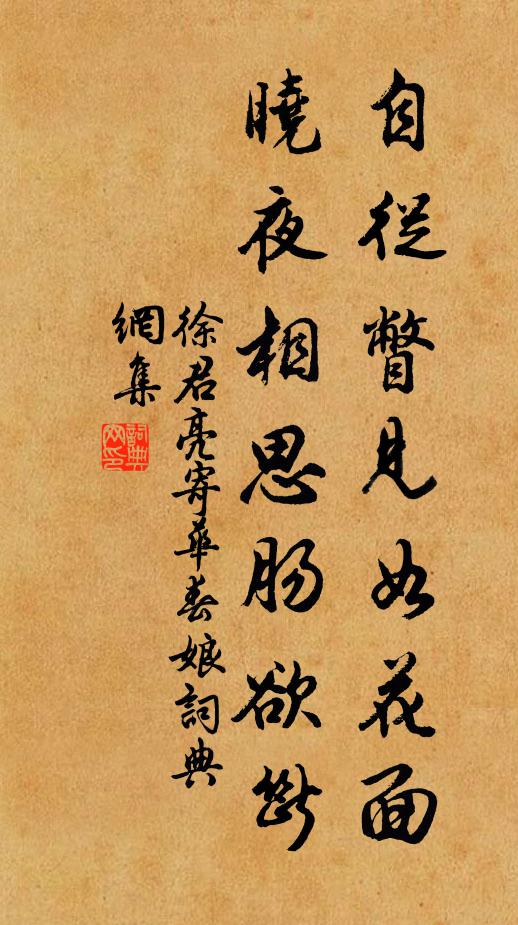 自從瞥見如花面
曉夜相思肠欲斷
徐君亮寄華春娘詞典
網集
詞典
网印